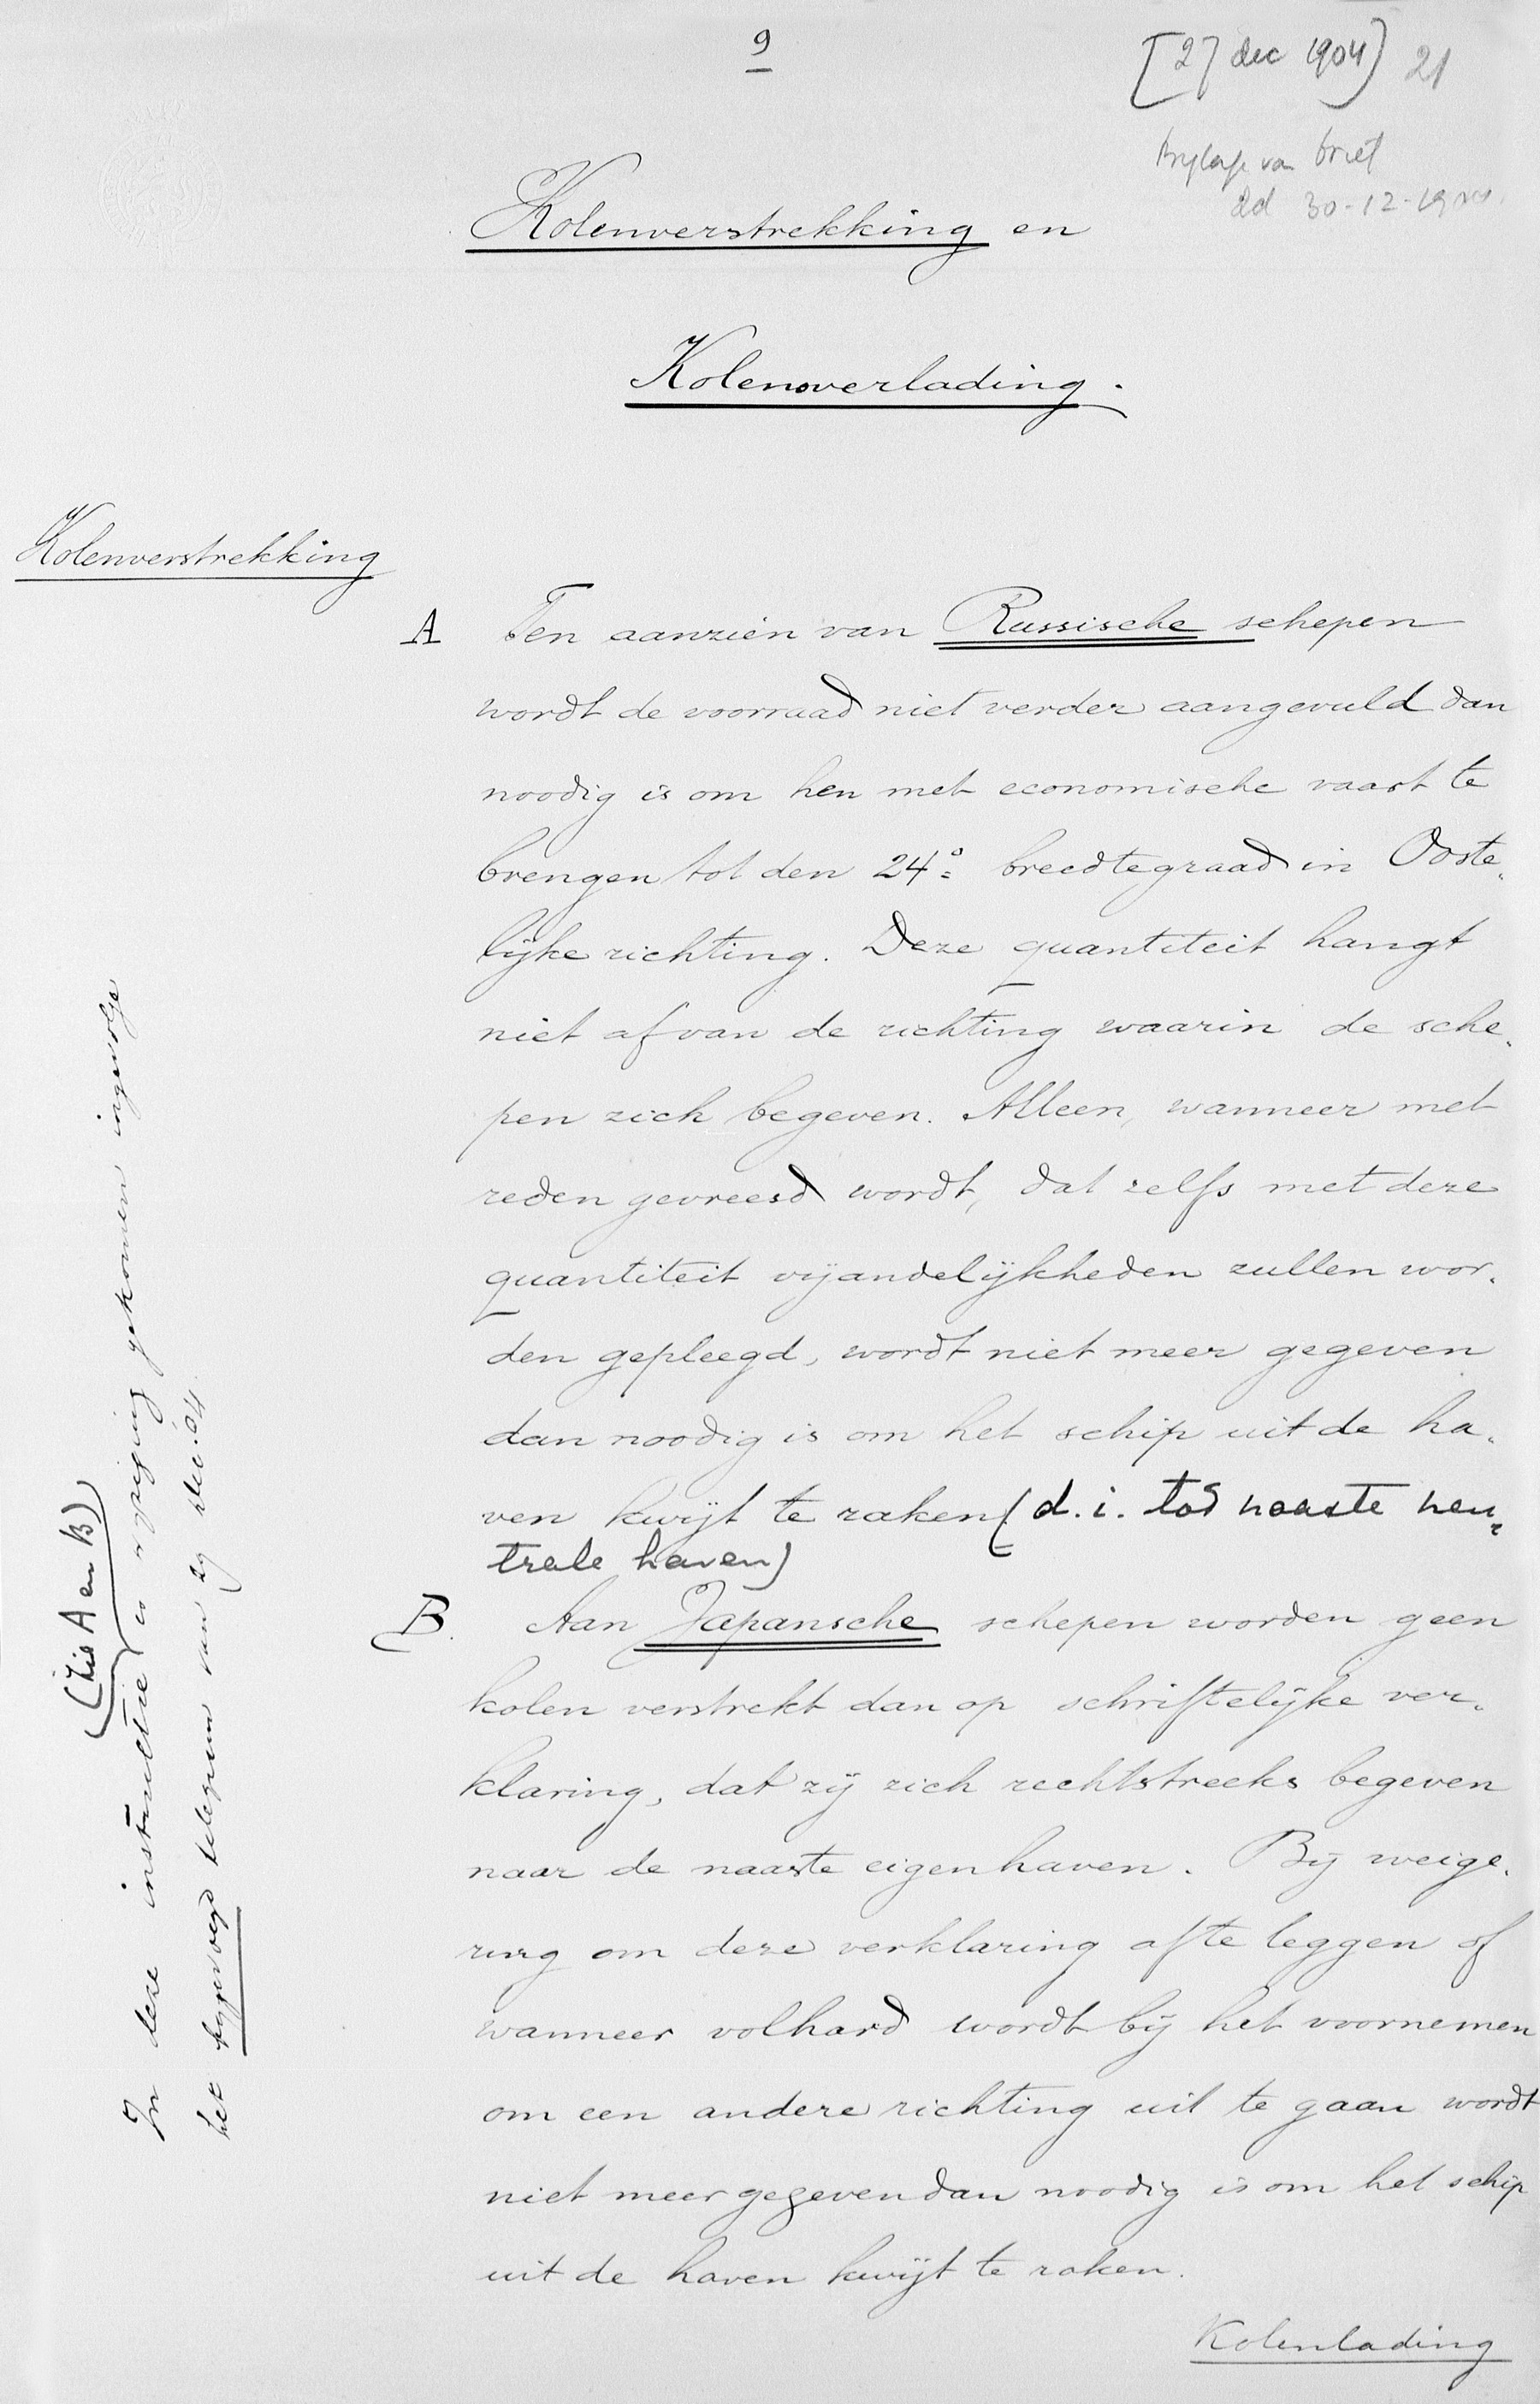 9
[27 dec 1904] 21
Bijlage van brief
dd 30-12-1904.
Kolenverstrekking en
Kolenoverlading.
Kolenverstrekking
A Ten aanzien van Russische schepen
wordt de voorraad niet verder aangevuld dan
noodig is om hen met economische vaart te
brengen tot den 24° breedtegraad in Ooste„
lijke richting. Deze quantiteit hangt
niet af van de richting waarin de sche„
pen zich begeven. Alleen, wanneer met
reden gevreesd wordt, dat zelfs met deze
quantiteit vijandelijkheden zullen wor„
den gepleegd, wordt niet meer gegeven
dan noodig is om het schip uit de ha„
ven kwijt te raken (d.i. tot naaste neu„
trale haven)
B. Aan Japansche schepen worden geen
kolen verstrekt dan op schriftelijke ver„
klaring, dat zij zich rechtstreeks begeven
naar de naaste eigen haven. Bij weige„
ring om deze verklaring af te leggen of
wanneer volhard wordt bij het voornemen
om een andere richting uit te gaan wordt
niet meer gegeven dan noodig is om het schip
uit de haven kwijt te raken.
Kolenlading
(Zie A en B)
In deze instructie is wijziging gekomen ingevolge
het bijgevoegd telegram van 29 dec. 04